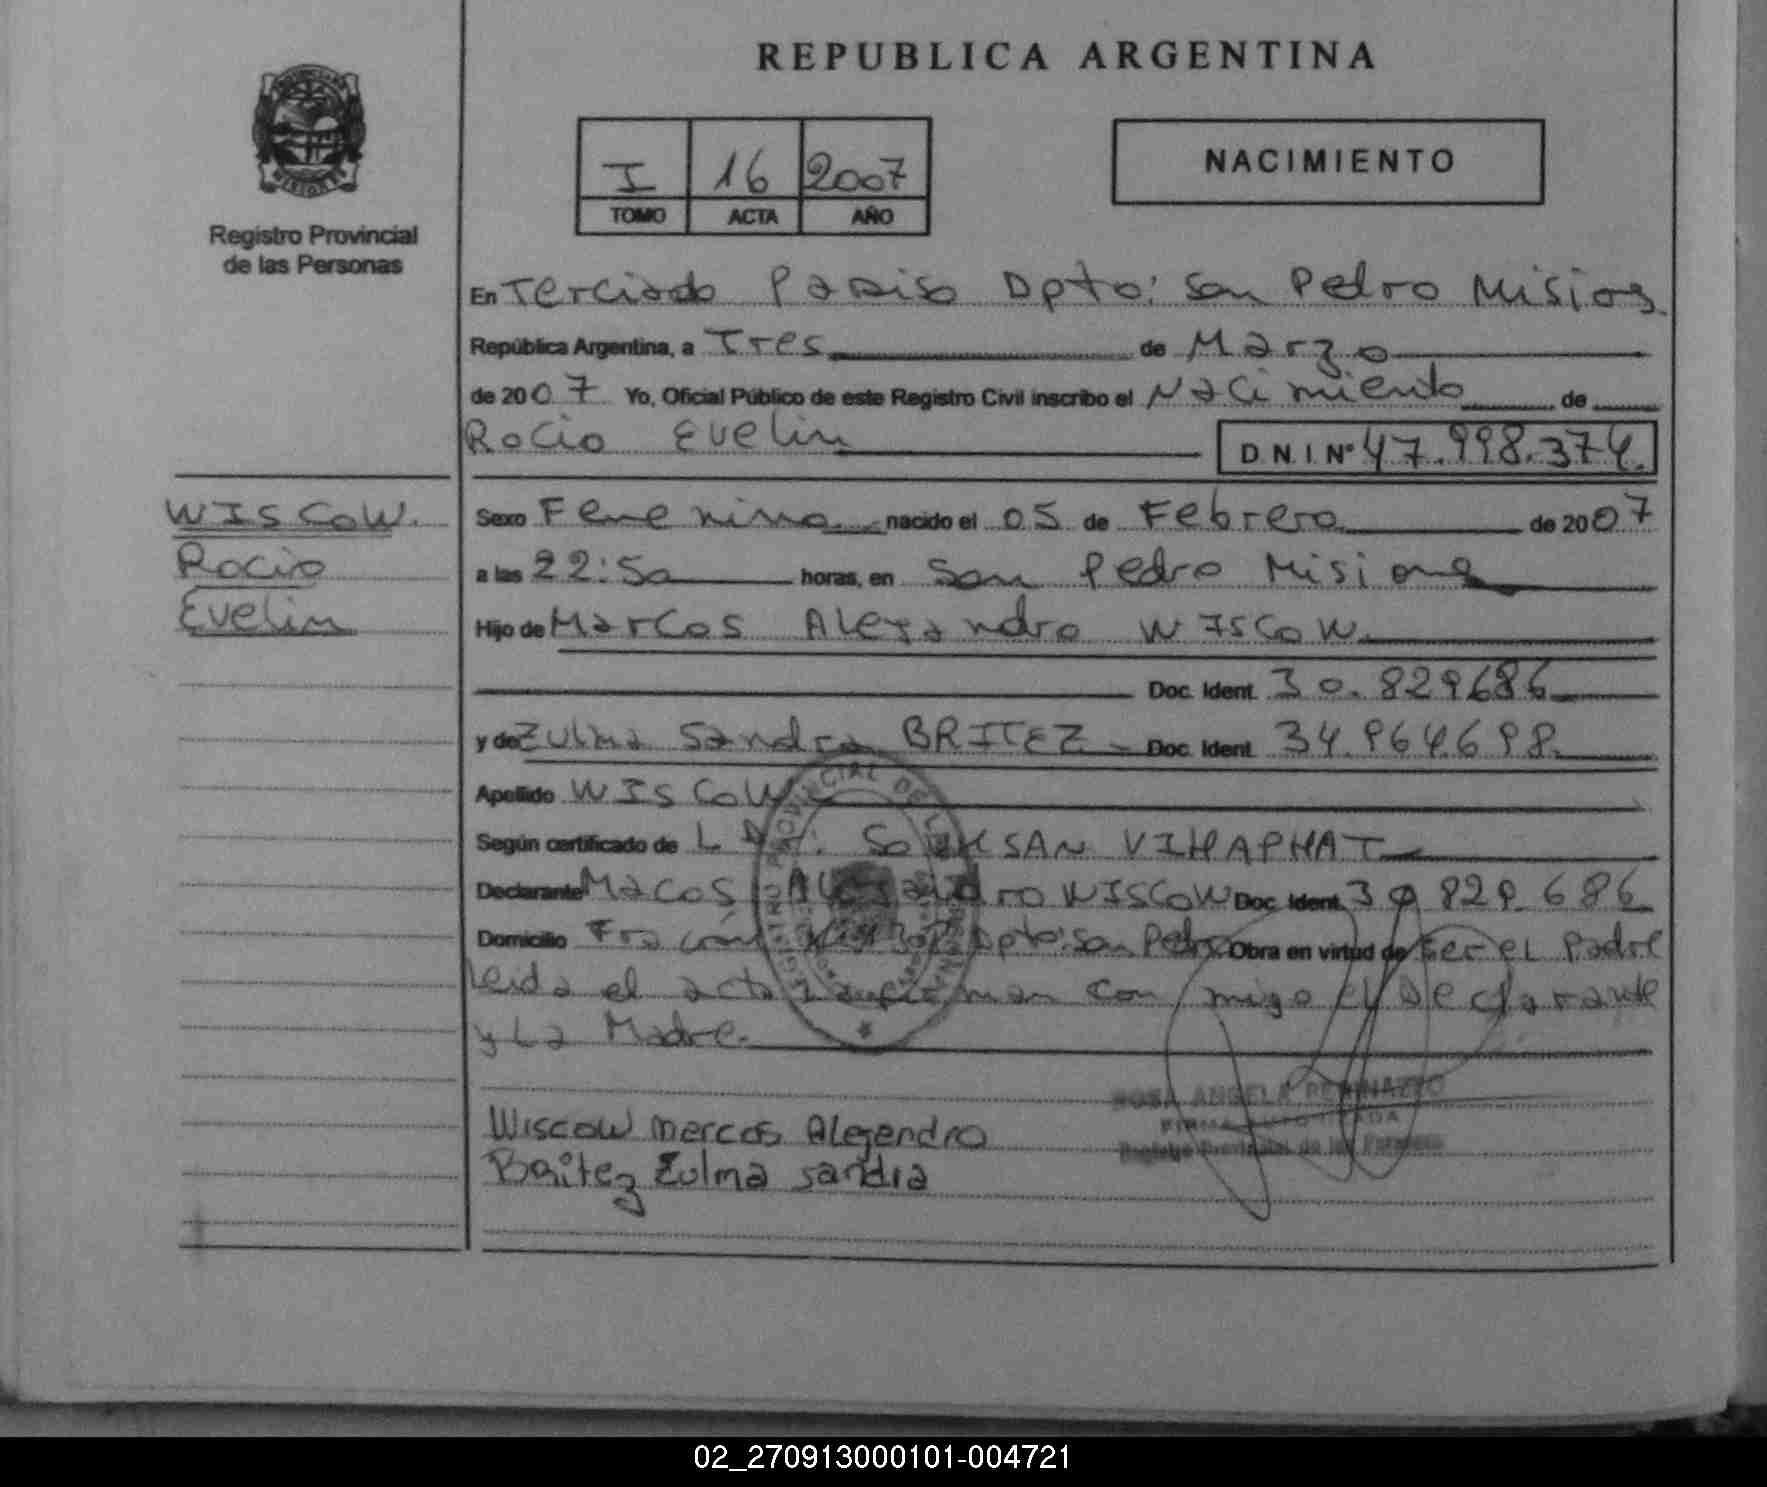 REPUBLICA ARGENTINA
I 16 2007
TOMO ACTA AÑO
NACIMIENTO
Registro Provincial
de las Personas
En Terciado Paraiso Dpto: San Pedro Misiones
República Argentina, a Tres de Marzo
de 2007 Yo, Oficial Público de este Registro Civil inscribo el Nacimiento de
Rocio Evelin D.N.I. Nº 47.998.374.
WISCOW.
Rocio
Evelin
Sexo Femenino nacido el 05 de Febrero de 2007
a las 22:50 horas, en San Pedro Misiones
Hijo de Marcos Alejandro WISCOW.
Doc. Ident. 30.829686
y de Zulma Sandra BRITEZ Doc. Ident. 34.964.698.
Apellido WISCOW
Según certificado de SOUKSAN VIHAPHAT
Declarante Macos Alejandro WISCOW Doc. Ident. 30 829 686
Domicilio Fracrán Dpto: San Pedro Obra en virtud de ser el Padre
Leida el acta firman con migo el Declarante
y La Madre.
Wiscow Marcos Alejandro
Britez Zulma Sandra
ROSA ANGELA
FIRMA AUTORIZADA
Registro Provincial de las Personas
02_270913000101-004721